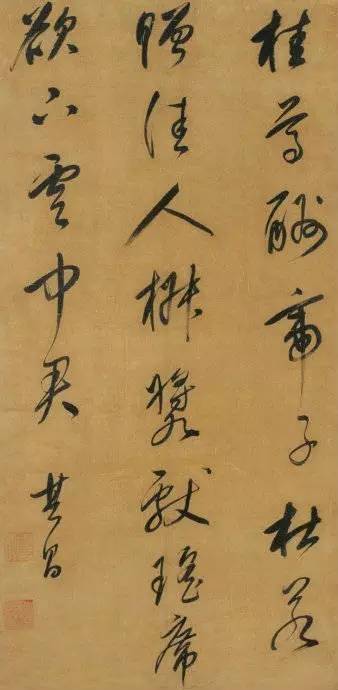 桂尊酬帝子杜若
贈佳人椒漿獻瑤席
欲下雲中君 其昌